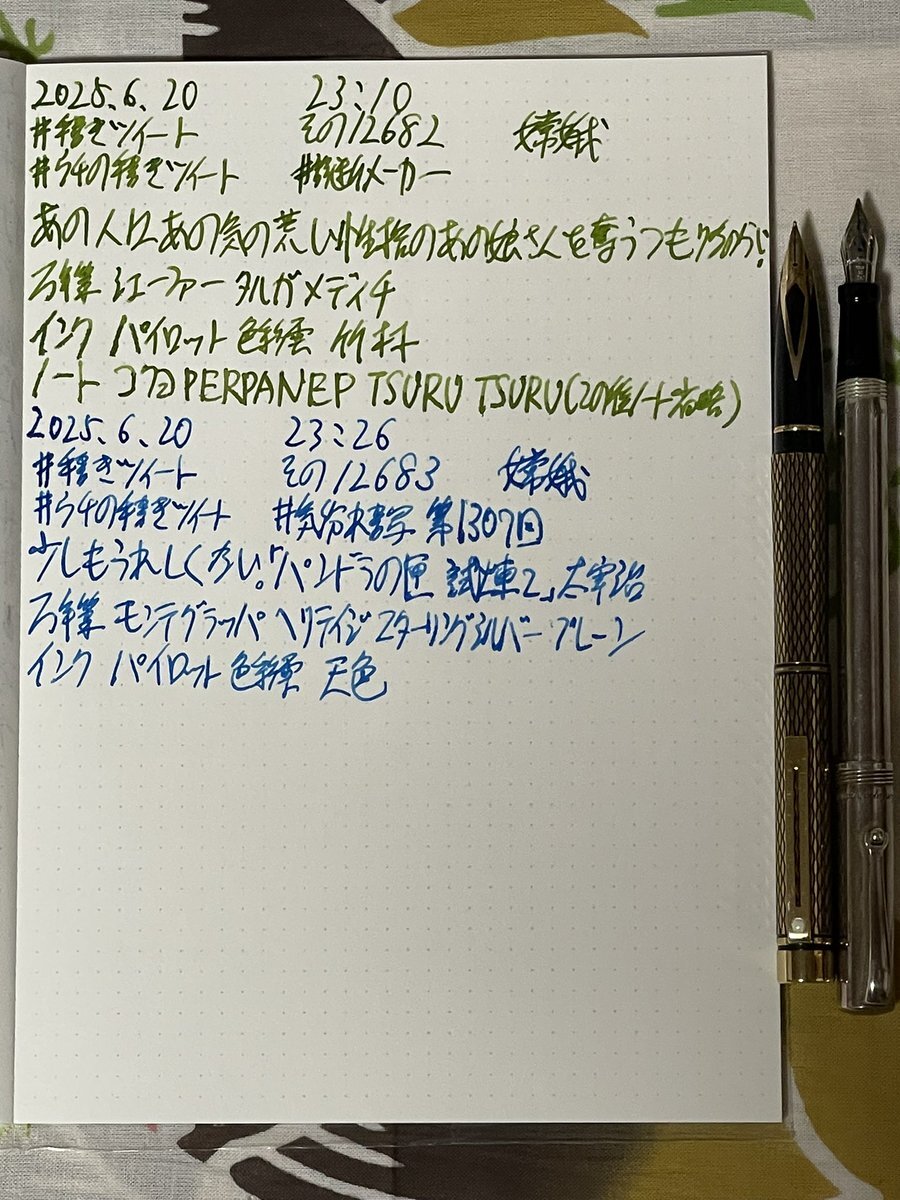 2025.6.20 23:10
#手書きツイート その12682 嫦娥
#ウチの手書きツイート メーカー
あの人はあの気の荒いあの娘さんを奪うつもりなのよ!
万年筆 シェーファー タルガ メディチ
インク パイロット 色彩雫 竹林
ノート コクヨPERPANEP TSURU TSURU(この後ノート省略)
2025.6.20 23:26
#手書きツイート その12683 嫦娥
#ウチの手書きツイート #気分は書写 第1307回
少しもうれしくない。「パンドラの匣 試煉2」太宰治
万年筆 モンテグラッパ ヘリテイジ スターリングシルバー プレーン
インク パイロット 色彩雫 天色